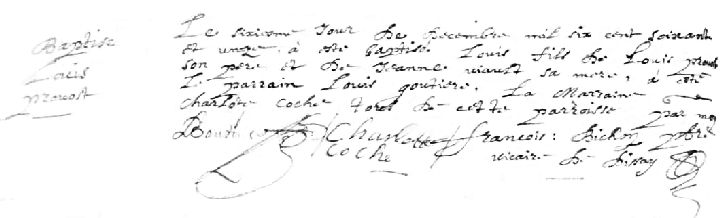 Baptise
Louis
provost
Le sixieme jour de decembre mil six cent soixant
et unze à esté baptisé Louis fils de Louis
son pere et de Jeanne viault sa mere, à esté
Le parrain Louis goutiere. La Marraine
charlote coche tous de cette parroisse par moy
Charlotte françois: Bichon pbre
coche vicaire de